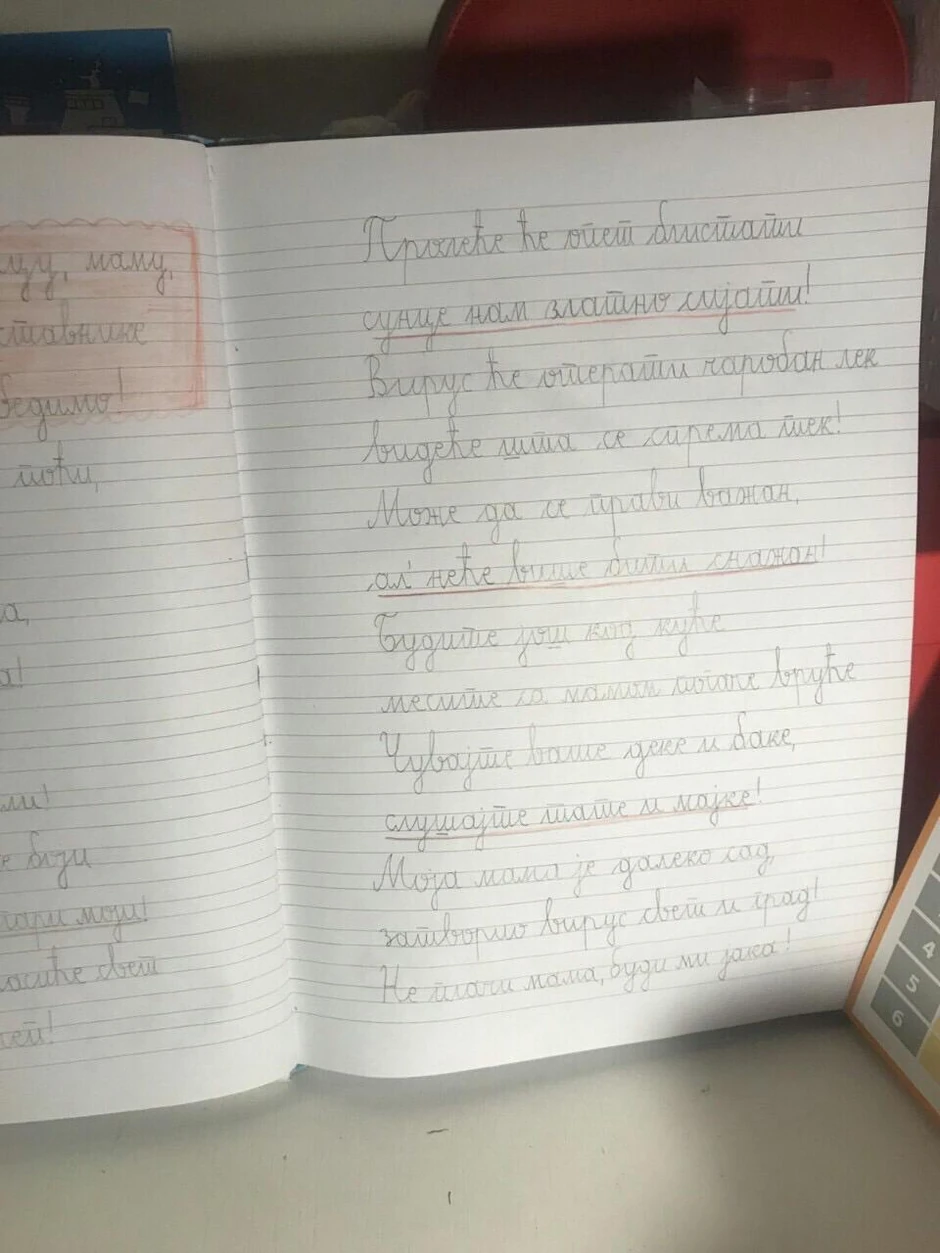 цу, маму,
ставнике
бедимо!
моћи,
а,
а!
ли!
е боји
лари моји!
ласиће свет
лет!
Пролеће ће опет блистати
сунце нам златно сијати!
Вирус ће отерати чаробан лек
видеће шта се спрема тек!
Може да се прави важан,
ал' неће више бити снажан!
Будите још код куће
месите са мамом погаче вруће
Чувајте ваше деке и баке,
слушајте тате и мајке!
Моја мама је далеко сад,
затворио вирус свет и град!
Не плачи мама, буди ми јака!
4
5
6